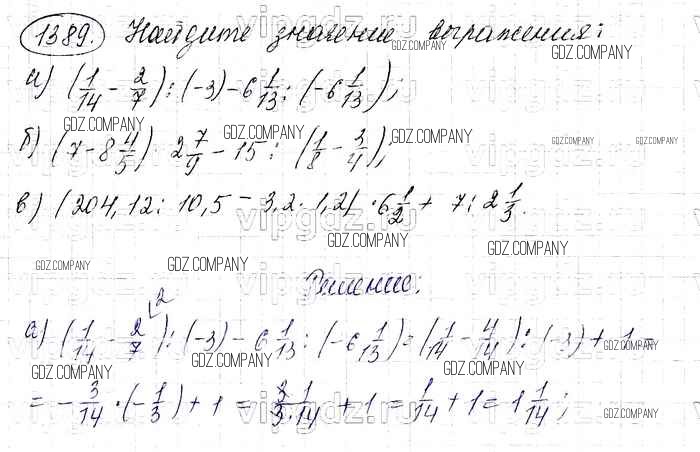 1389. Найдите значение выражения:
а) (1/14 - 2/7) : (-3) - 6 1/13 : (-6 1/13);
б) (7 - 8 4/5) · 2 7/9 - 15 : (1/8 - 3/4);
в) (204,12 : 10,5 - 3,2 · 1,2) · 6 1/2 + 7 : 2 1/3.
Решение:
а) (1/14 - 2/7 \2) : (-3) - 6 1/13 : (-6 1/13) = (1/14 - 4/14) : (-3) + 1 =
= - 3/14 · (- 1/3) + 1 = 3·1/3·14 + 1 = 1/14 + 1 = 1 1/14;
GDZ.COMPANY
vipgdz.ru